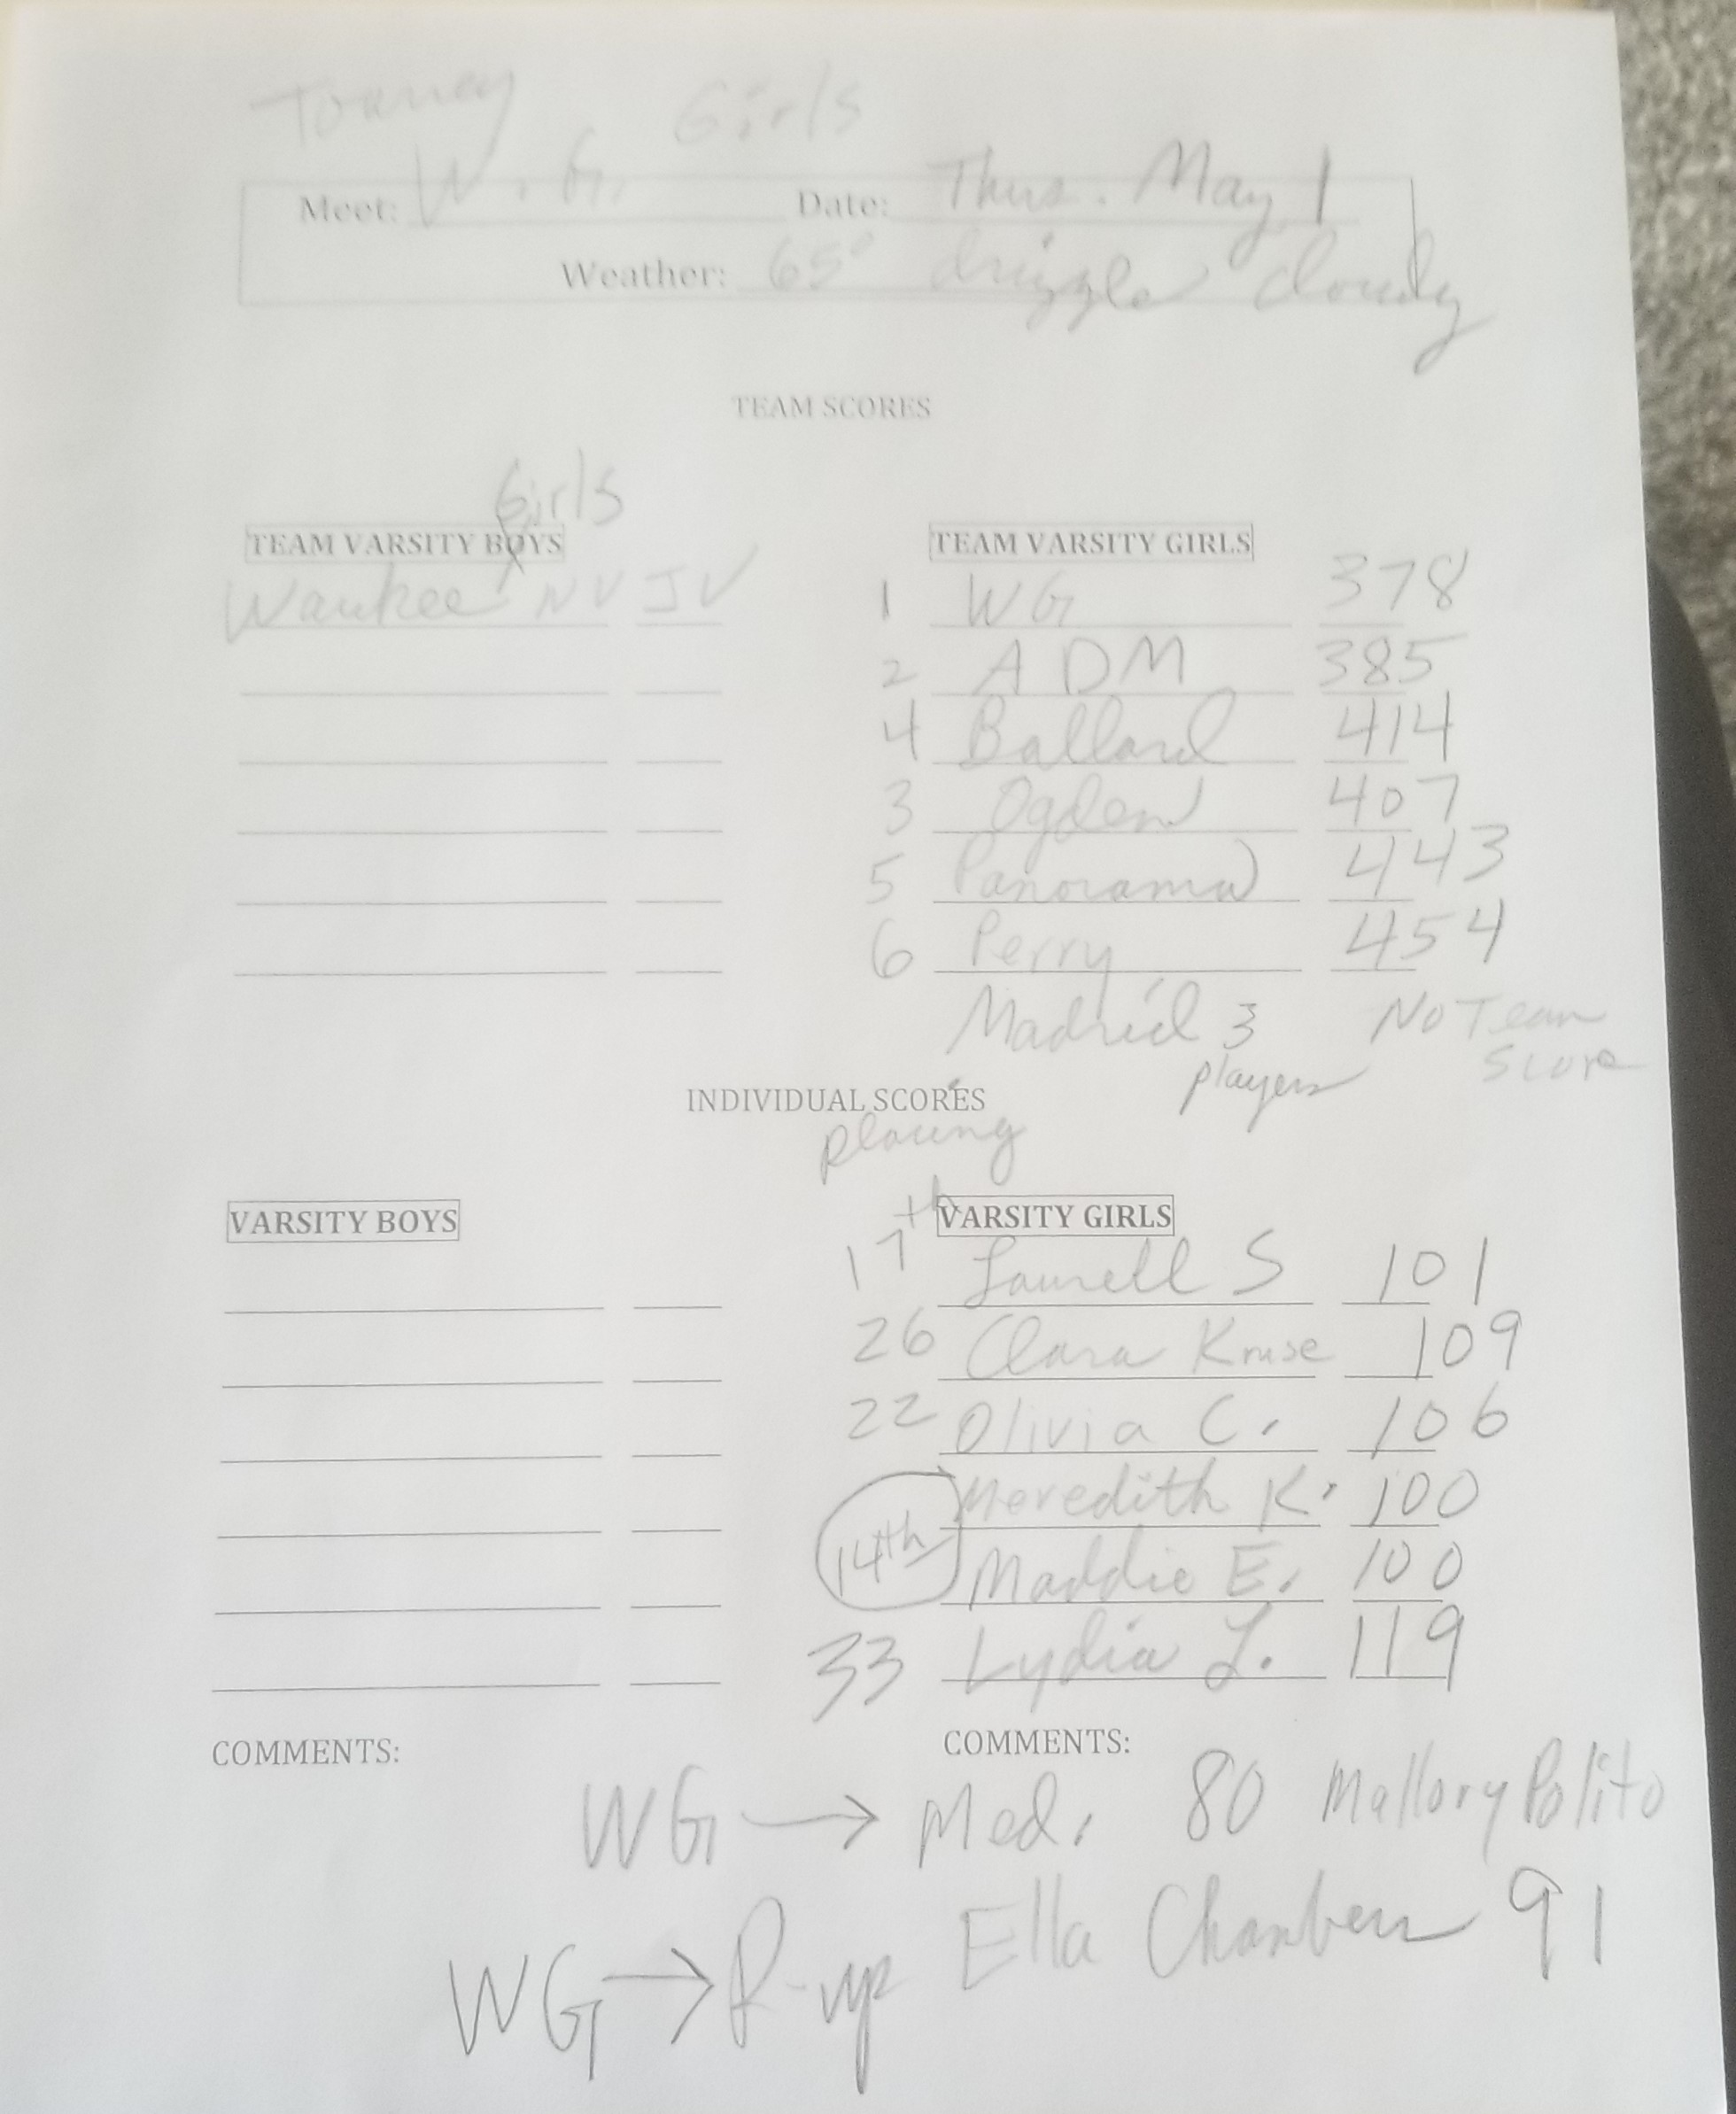 Tourney Girls
Meet: W.G. Date: Thurs. May 1
Weather: 65° drizzle cloudy
TEAM SCORES
Girls
TEAM VARSITY BOYS
Waukee NV JV
TEAM VARSITY GIRLS
1 WG 378
2 ADM 385
4 Ballard 414
3 Ogden 407
5 Panorama 443
6 Perry 454
Madrid 3 players No Team Score
INDIVIDUAL SCORES
placing
VARSITY BOYS
VARSITY GIRLS
17th Laurell S 101
26 Clara Kruse 109
22 Olivia C. 106
14th Meredith K. 100
Maddie E. 100
33 Lydia L. 119
COMMENTS:
COMMENTS:
WG → Med. 80 Mallory Polito
WG → R-up Ella Chambers 91